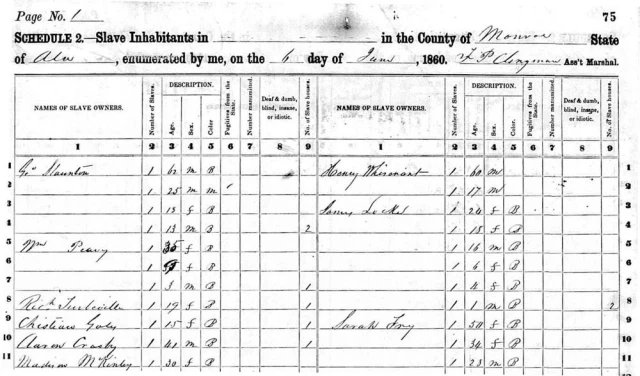 Page No. 1
75
SCHEDULE 2.—Slave Inhabitants in in the County of Monroe State
of Ala, enumerated by me, on the 6 day of June, 1860. Ass't Marshal.
NAMES OF SLAVE OWNERS. Number of Slaves. DESCRIPTION. Age. Sex. Color. Fugitives from the State. Number manumitted. Deaf & dumb, blind, insane, or idiotic. No. of Slave houses. NAMES OF SLAVE OWNERS. Number of Slaves. DESCRIPTION. Age. Sex. Color. Fugitives from the State. Number manumitted. Deaf & dumb, blind, insane, or idiotic. No. of Slave houses.
1 2 3 4 5 6 7 8 9 1 2 3 4 5 6 7 8 9
1 Geo Staunton 1 62 m B Henry Whisenant 1 60 m 1
2 1 25 m m 1 17 m 2
3 1 13 f B James Locke 1 24 f B 3
4 1 13 m B 2 1 18 f B 4
5 Wm Peavy 1 35 f B 1 16 m B 5
6 1 f B 1 6 f B 6
7 1 3 m B 1 1 4 f B 7
8 Rich Turbeville 1 19 f B 1 1 1 m B 2 8
9 Christian 1 15 f B 1 Sarah Fry 1 50 f B 9
10 Aaron Crosby 1 41 m B 1 1 34 f B 10
11 Madison McKinley 1 30 f B 1 23 m B 11